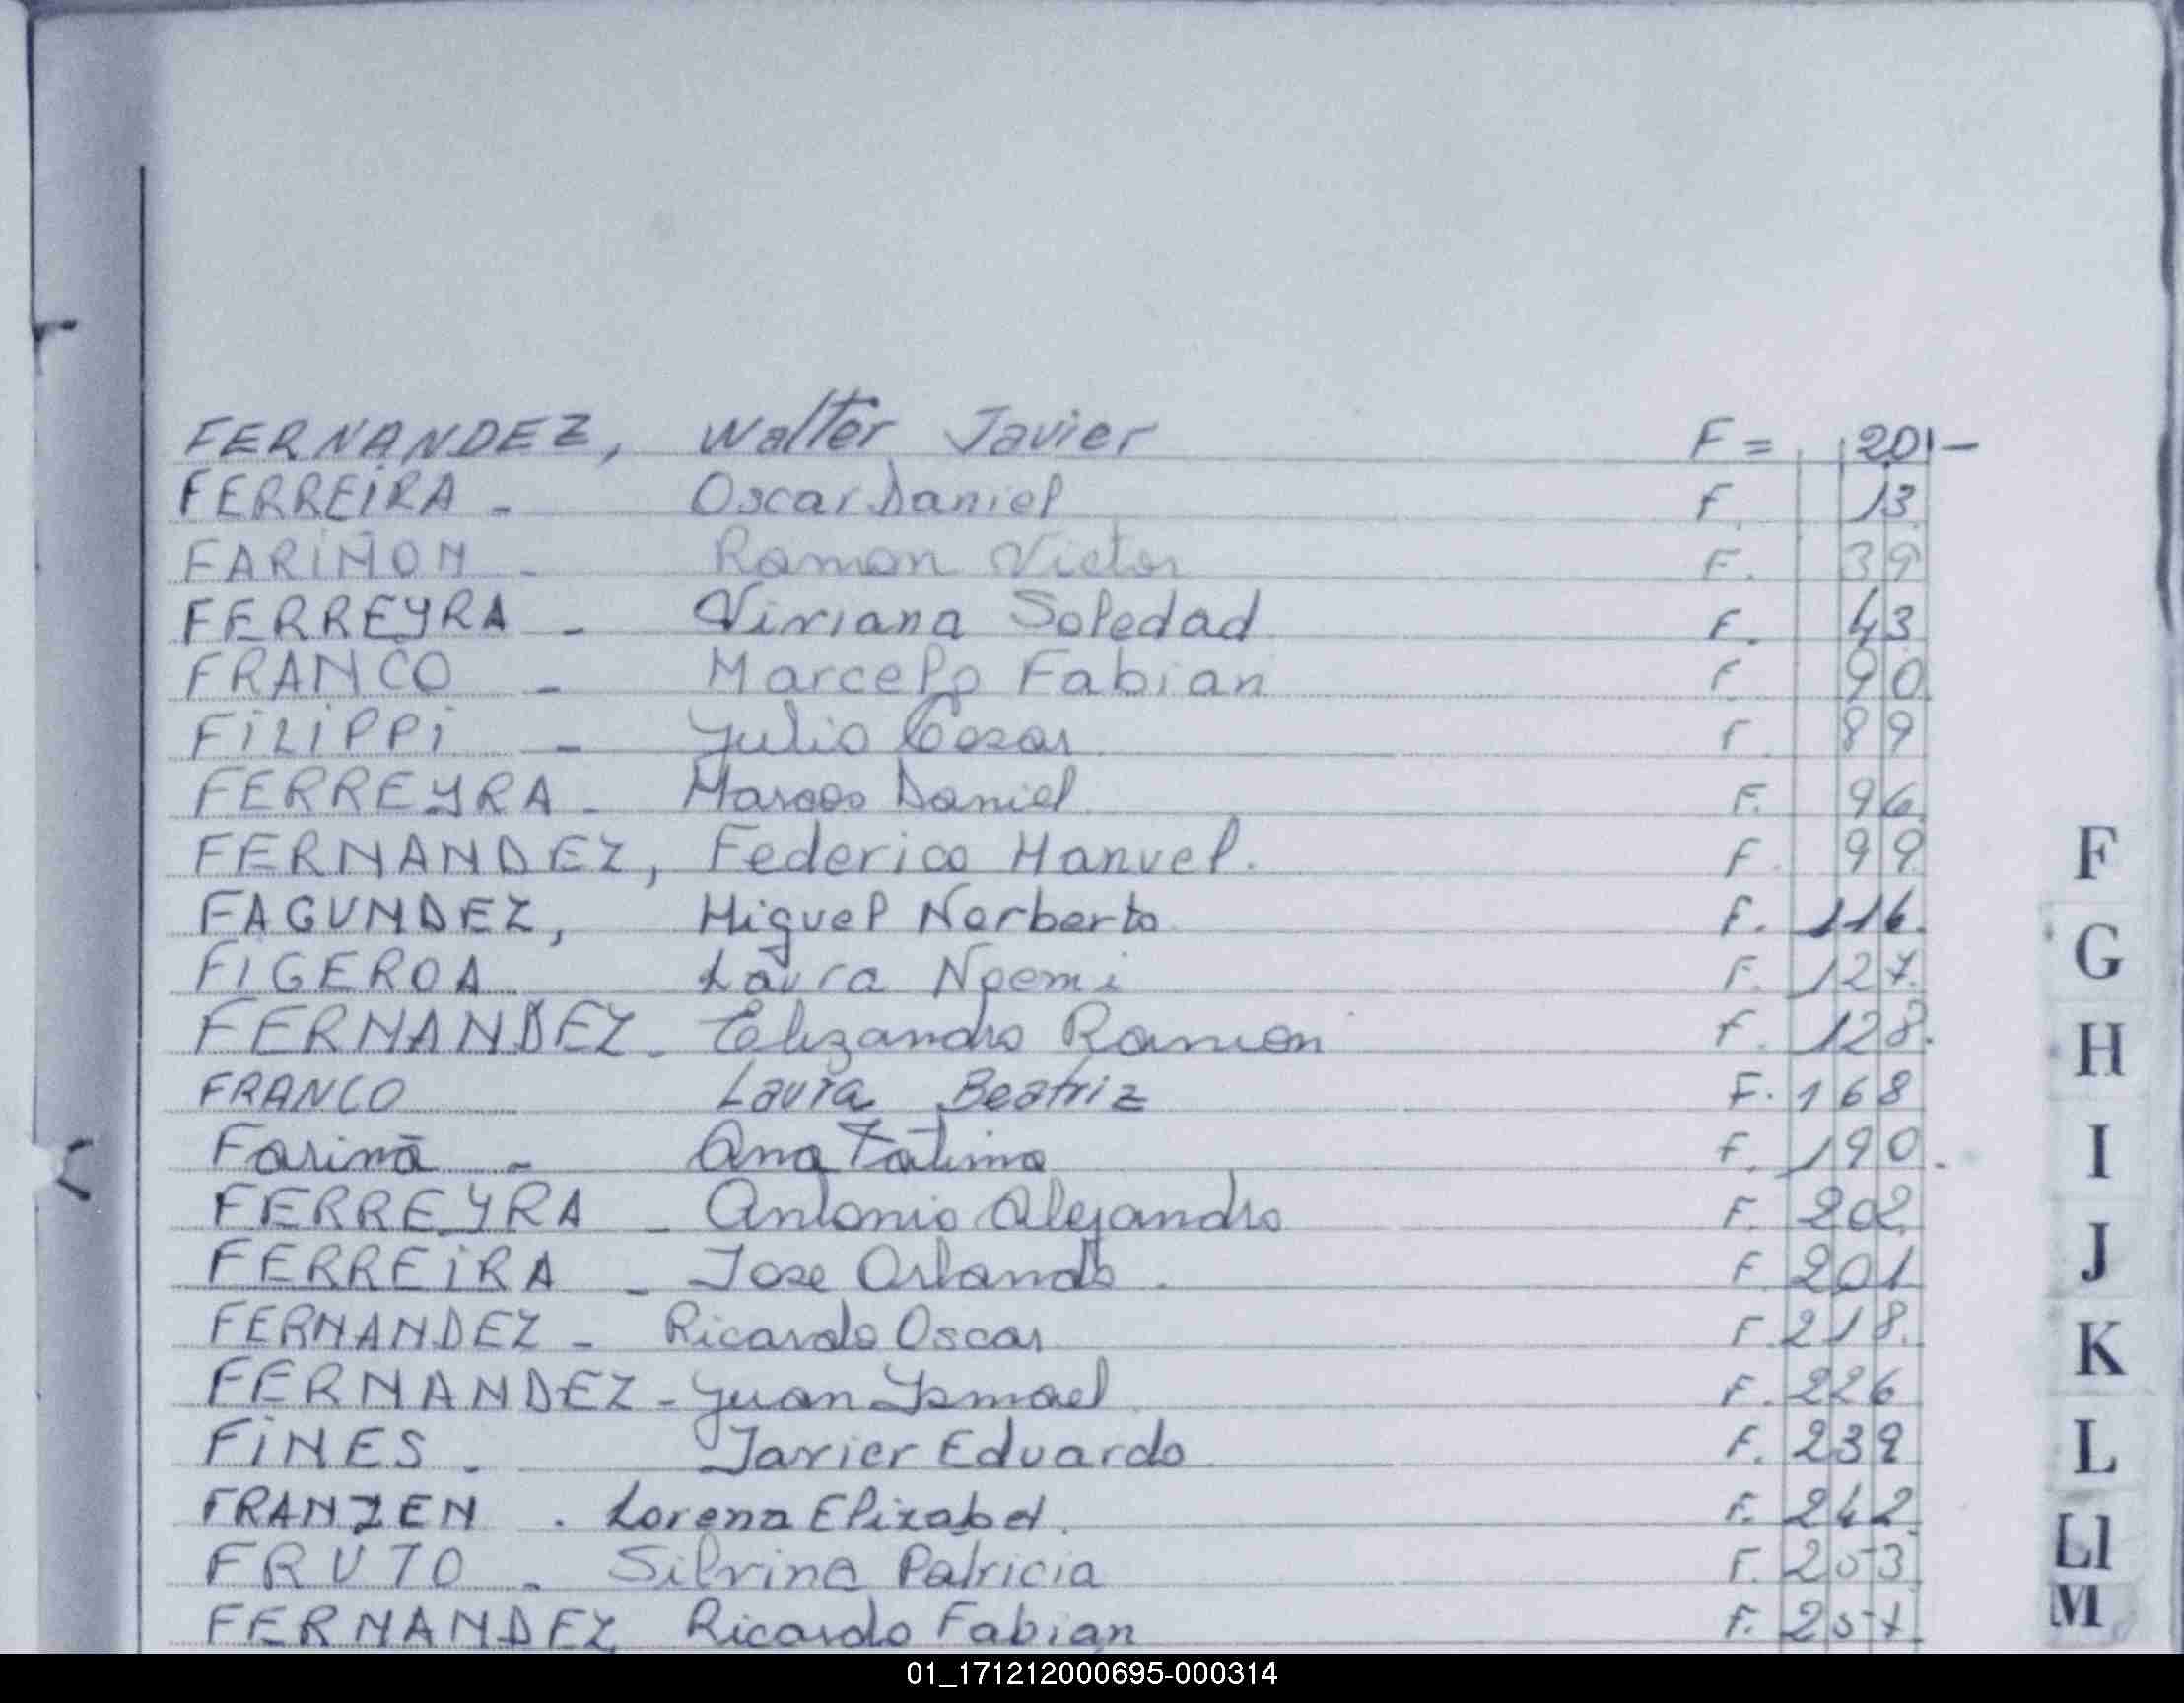 FERNANDEZ, Walter Javier F = 201-
FERREIRA - Oscar Daniel F. 13
FARIÑON - Ramon Victor F. 39
FERREYRA - Viviana Soledad F. 43
FRANCO - Marcelo Fabian F 90
FILIPPI - Julio Cesar F. 89
FERREYRA - Marcos Daniel F. 96
FERNANDEZ, Federico Manuel. F. 99
FAGUNDEZ, Miguel Norberto F. 116.
FIGEROA Laura Noemi F. 127.
FERNANDEZ - Elizandro Ramon F. 128.
FRANCO Laura Beatriz F. 168
Farina - Ana Fatima F. 190.
FERREYRA - Antonio Alejandro F. 202.
FERREIRA - Jose Orlando. F 201
FERNANDEZ - Ricardo Oscar F. 218.
FERNANDEZ - Juan Ysmael F. 226
FINES - Javier Eduardo F. 239
FRANZEN . Lorena Elizabet. F. 242.
FRUTO - Silvina Patricia F. 253
FERNANDEZ Ricardo Fabian F. 257.
F
G
H
I
J
K
L
Ll
M
01_171212000695-000314